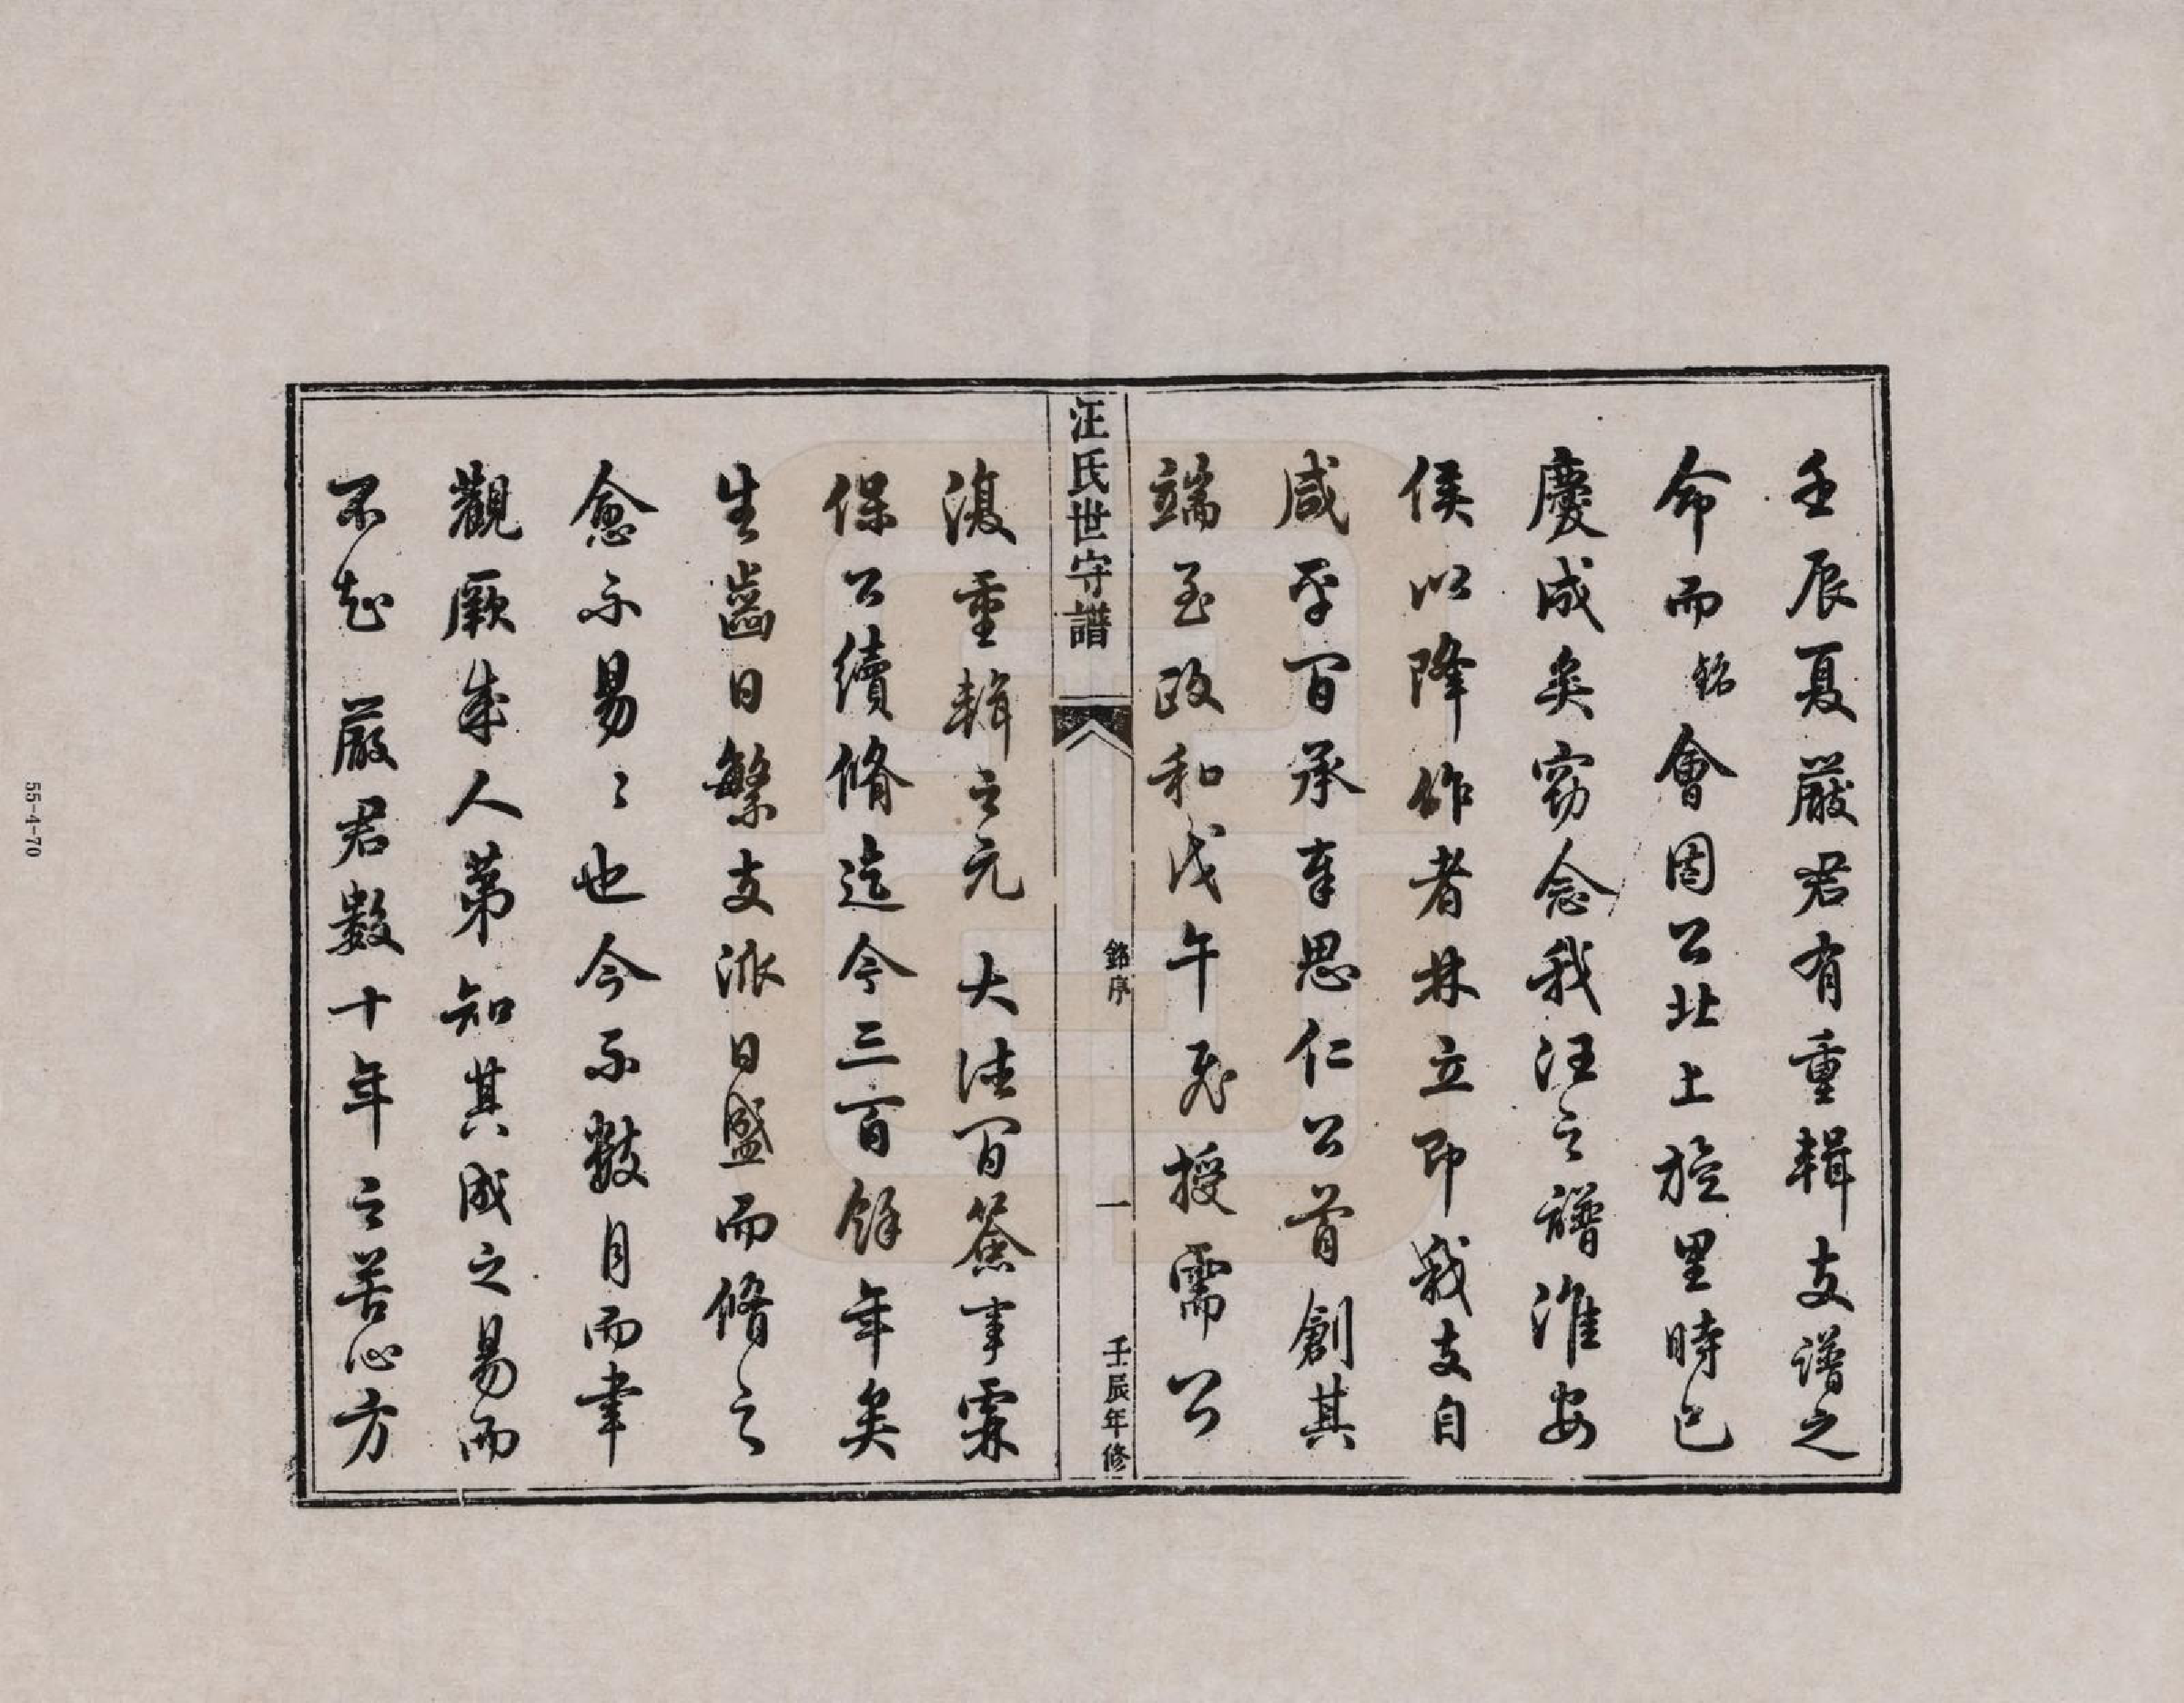 壬辰夏嚴君有重輯支譜之
命而銘會因公北上旋里時已
慶成矣竊念我汪之譜淮安
侯以降作者林立即我支自
咸平間承奉思仁公首創其
端至政和戊午登授需公
汪氏世守譜
銘序
一
壬辰年修
復重輯之元大德間簽事霖
保公續脩迄今三百餘年矣
生齒日繁支派日盛而脩之
愈不易々也今不數月而聿
觀厥成人第知其成之易而
不知嚴君數十年之苦心方
55-4-70